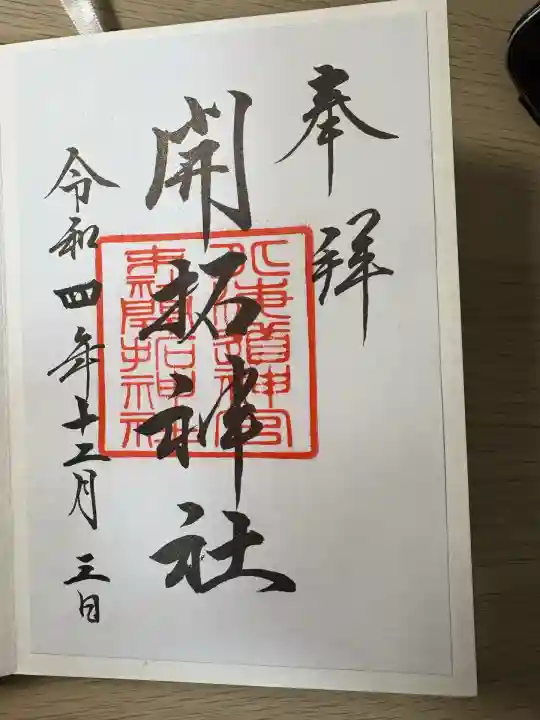 奉拝
開拓神社
令和四年十二月三日
北海道神宮
末開拓神社